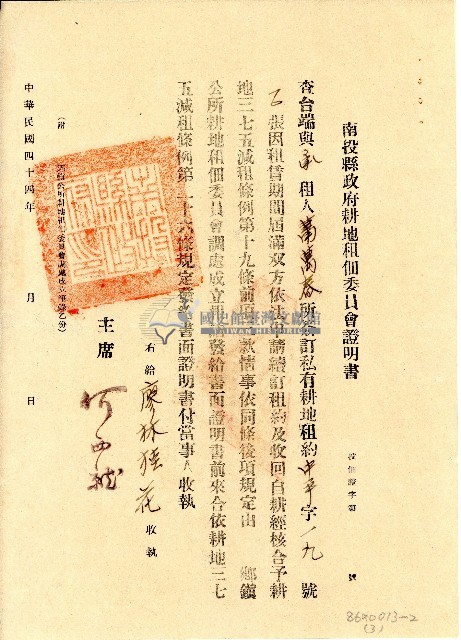 南投縣政府耕地租佃委員會證明書
投佃證字第 號
查台端與承租人萬春所訂私有耕地租約中平字一九 號
乙張因租賃期間屆滿双方依法申請續訂租約及收回自耕經核合予耕
地三七五減租條例第十九條前項 款情事依同條後項規定由 鄉鎮
公所耕地租佃委員會調處成立 發給書面證明書前來合依耕地三七
五減租條例第二十六條規定發給書面證明書付當事人收執
右給廖林 花 收執
主席 何
(附 公所耕地租佃委員會調處成立筆錄乙份)
中華民國四十四年 月 日
國史館臺灣文獻館
TAIWAN HISTORICA
8690013-2
(3)